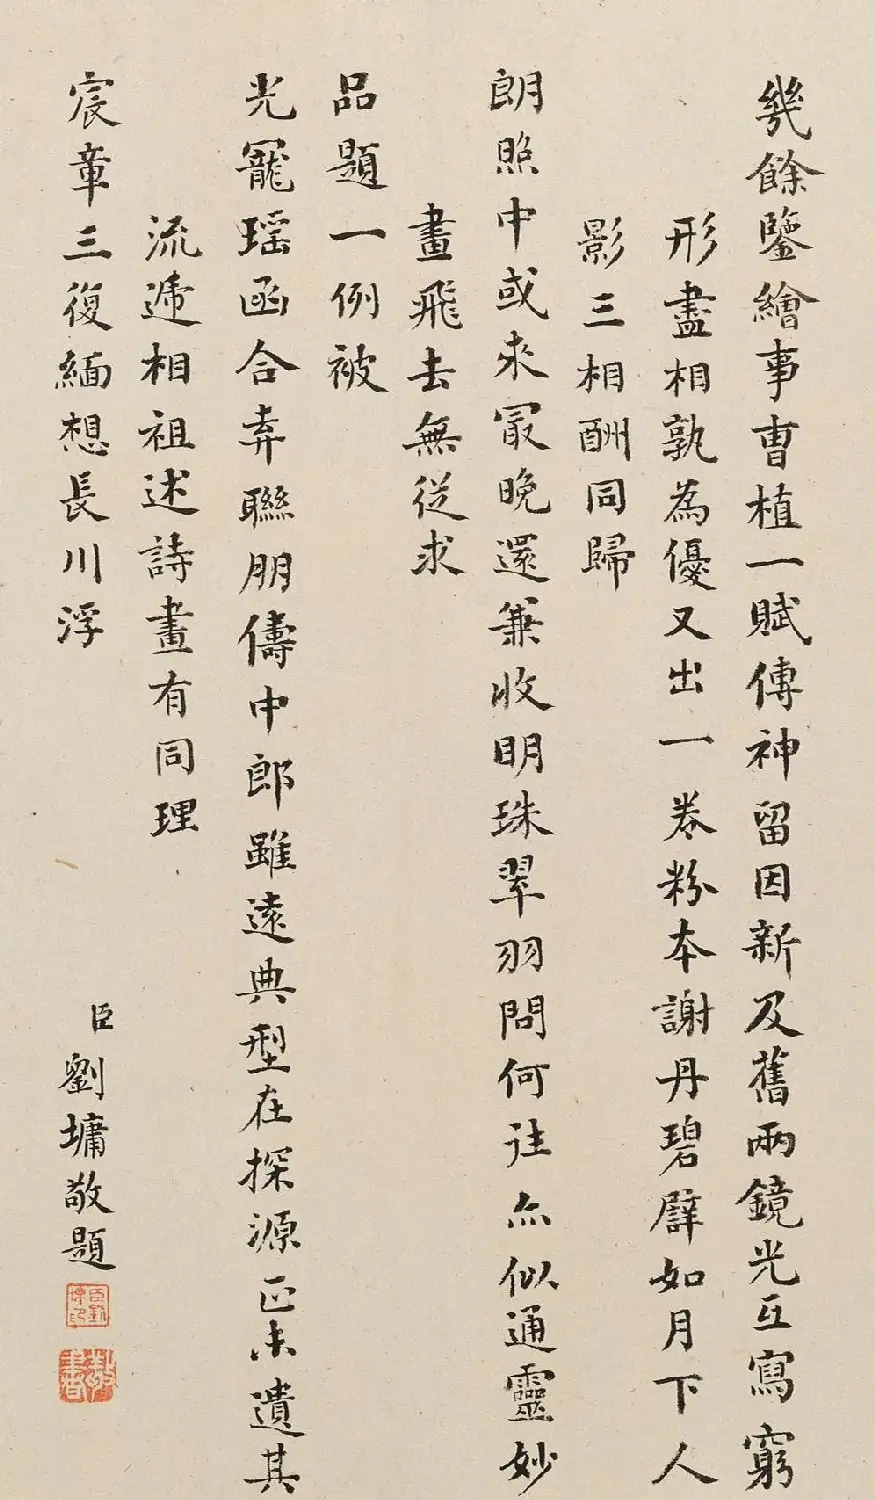 幾餘鑒繪事曹植一賦傳神留因新及舊兩鏡光互寫窮
形盡相孰為優又出一卷粉本謝丹碧譬如月下人
影三相酬同歸
朗照中或來冣晚還兼收明珠翠羽問何往亦似通靈妙
畫飛去無從求
品題一例被
光寵瑶函合弆聯朋儔中郎雖遠典型在探源正未遺其
流遞相祖述詩畫有同理
宸章三復緬想長川浮
臣劉墉敬題